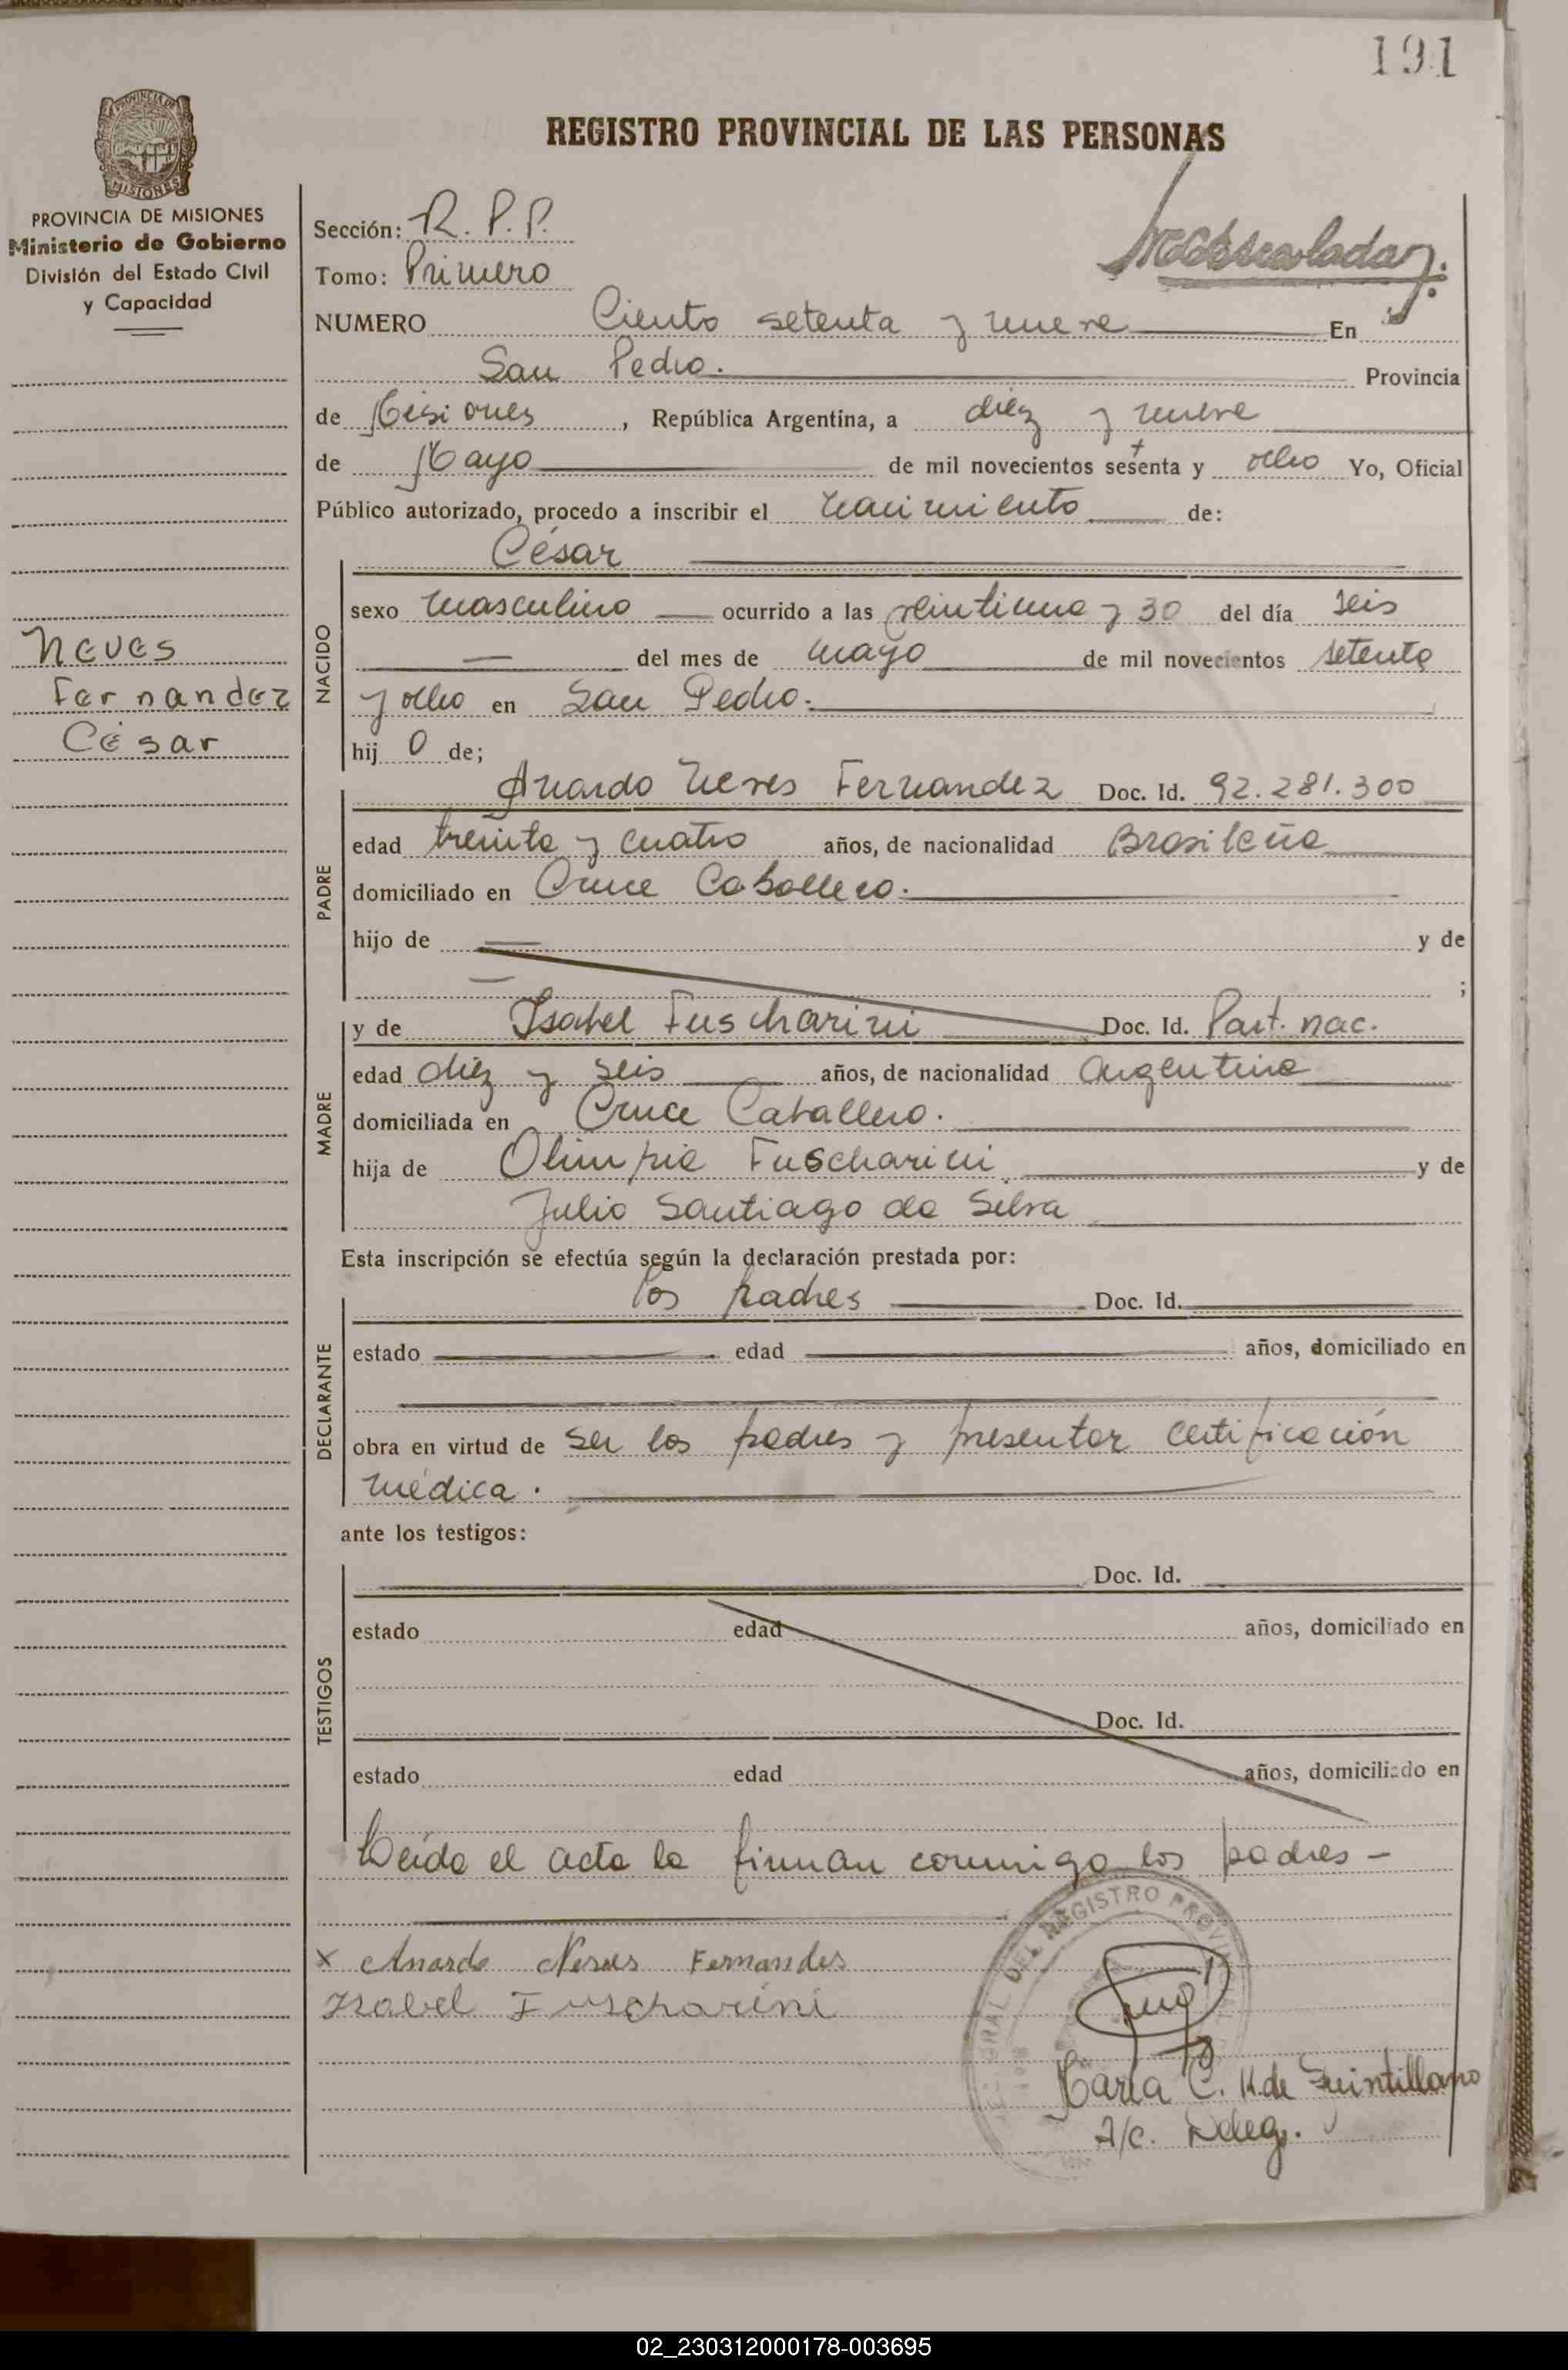 191
REGISTRO PROVINCIAL DE LAS PERSONAS
PROVINCIA DE MISIONES
MISIONES
PROVINCIA DE MISIONES
Ministerio de Gobierno
División del Estado Civil
y Capacidad
Sección: R. P. P.
Tomo: Primero
NUMERO Ciento setenta y nueve En
San Pedro. Provincia
de Misiones, República Argentina, a diez y nueve
de Mayo de mil novecientos setenta y ocho Yo, Oficial
Público autorizado, procedo a inscribir el nacimiento de:
César
NACIDO
sexo masculino ocurrido a las veintiuna y 30 del día seis
del mes de mayo de mil novecientos setenta
y ocho en San Pedro.
hij o de;
Neves
Fernandez
César
PADRE
Anardo Neves Fernandez Doc. Id. 92.281.300
edad treinta y cuatro años, de nacionalidad Brasileña
domiciliado en Cruce Caballero.
hijo de y de
;
MADRE
y de Isabel Fuscharini Doc. Id. Part. nac.
edad diez y seis años, de nacionalidad argentina
domiciliada en Cruce Caballero.
hija de Olimpia Fuscharini y de
Julio Santiago da Silva
Esta inscripción se efectúa según la declaración prestada por:
DECLARANTE
los padres Doc. Id.
estado edad años, domiciliado en
obra en virtud de ser los padres y presentar certificación
médica.
ante los testigos:
TESTIGOS
Doc. Id.
estado edad años, domiciliado en
Doc. Id.
estado edad años, domiciliado en
Leída el acta la firman conmigo los padres -
x Anardo Neves Fernandes
Isabel Fuscharini
GRAL. DEL REGISTRO PROVINCIAL
María C. K. de Quintillano
A/c. Deleg.
02_230312000178-003695